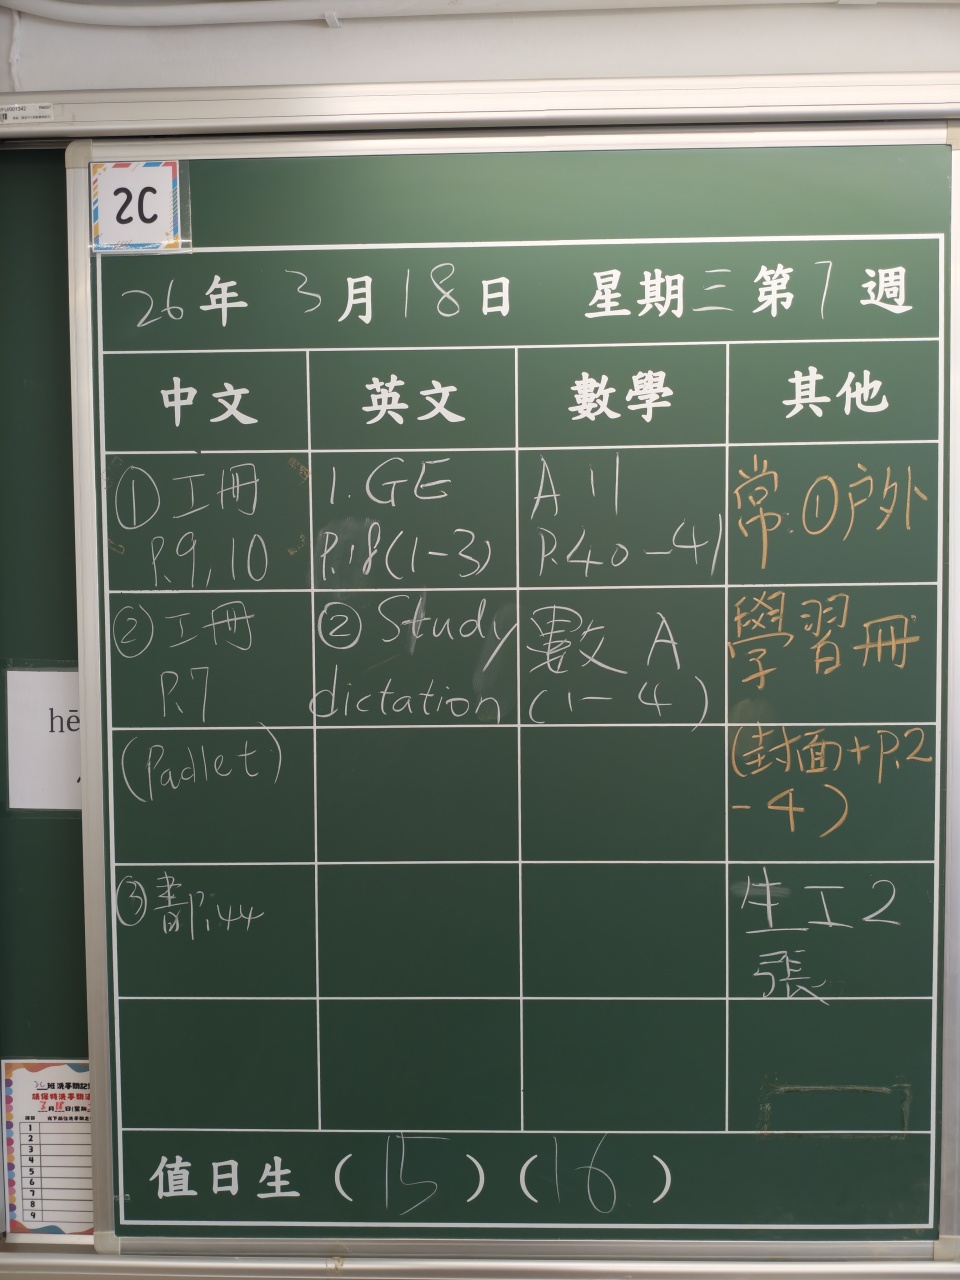 2C
26年 3月18日 星期三第7週
中文 英文 數學 其他
①工冊
P.9,10
1.GE
P.18(1-3)
A 11
P.40-41
常.①户外
②工冊
P.7
② Study
dictation
數 A
(1-4)
學習冊
(Padlet)
(封面+P.2
-4)
③書P.44
生工2
張
值日生(15)(16)
hē
1
2
3
4
5
6
7
8
9